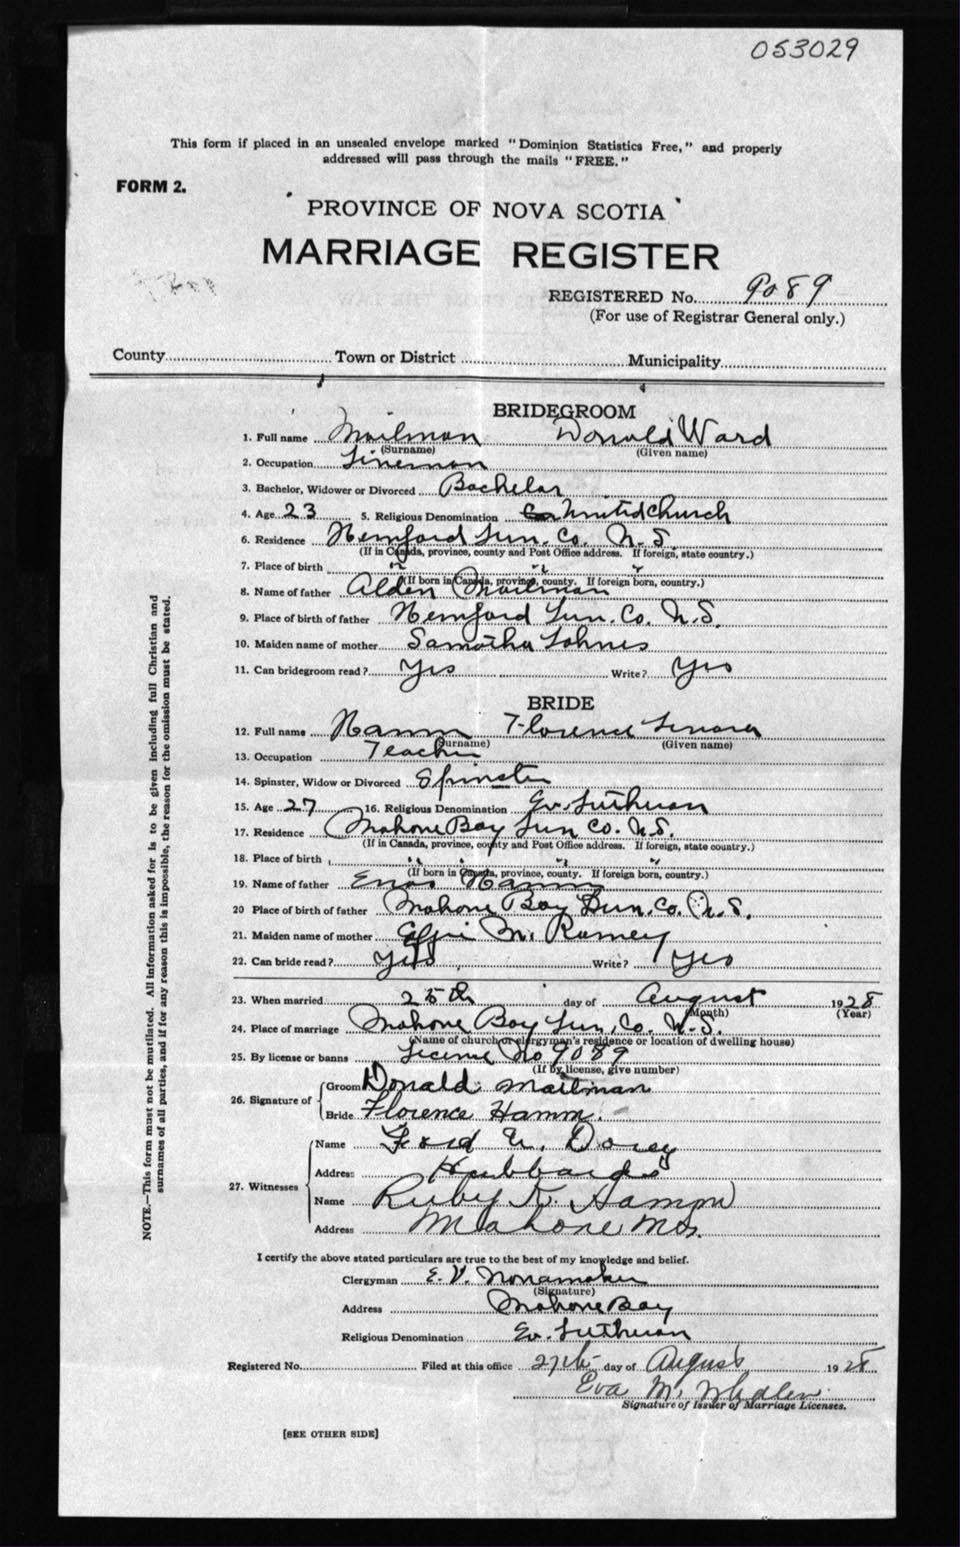 053029
This form if placed in an unsealed envelope marked "Dominion Statistics Free," and properly
addressed will pass through the mails "FREE."
FORM 2.
PROVINCE OF NOVA SCOTIA
MARRIAGE REGISTER
REGISTERED No. 9089
(For use of Registrar General only.)
County Town or District Municipality
BRIDEGROOM
1. Full name Mailman Donald Ward
(Surname) (Given name)
2. Occupation Lineman
3. Bachelor, Widower or Divorced Bachelor
4. Age 23 5. Religious Denomination United Church
6. Residence Hemford Lun. Co. N.S.
(If in Canada, province, county and Post Office address. If foreign, state country.)
7. Place of birth " " "
(If born in Canada, province, county. If foreign born, country.)
8. Name of father Alden Mailman
9. Place of birth of father Hemford Lun. Co. N.S.
10. Maiden name of mother Samatha Lohnes
11. Can bridegroom read? Yes Write? Yes
BRIDE
12. Full name Hamm Florence Lenora
(Surname) (Given name)
13. Occupation Teacher
14. Spinster, Widow or Divorced Spinster
15. Age 27 16. Religious Denomination Ev. Lutheran
17. Residence Mahone Bay Lun Co. N.S.
(If in Canada, province, county and Post Office address. If foreign, state country.)
18. Place of birth " " " "
(If born in Canada, province, county. If foreign born, country.)
19. Name of father Enos Hamm
20 Place of birth of father Mahone Bay Lun. Co. N.S.
21. Maiden name of mother Effie M. Ramey
22. Can bride read? Yes Write? Yes
23. When married 25th day of August 1928
(Month) (Year)
24. Place of marriage Mahone Bay Lun. Co. N.S.
(Name of church or clergyman's residence or location of dwelling house)
25. By license or banns License No 9089
(If by license, give number)
26. Signature of Groom Donald Mailman
Bride Florence Hamm.
27. Witnesses
Name Ford Dorey
Address Hubbards
Name Ruby K. Hamm
Address Mahone
I certify the above stated particulars are true to the best of my knowledge and belief.
Clergyman E. V. Nonamaker
(Signature)
Address Mahone Bay
Religious Denomination Ev. Lutheran
Registered No. Filed at this office 27th day of August 1928
Eva M. Whalen
Signature of Issuer of Marriage Licenses.
[SEE OTHER SIDE]
NOTE.—This form must not be mutilated. All information asked for is to be given including full Christian and
surnames of all parties, and if for any reason this is impossible, the reason for the omission must be stated.